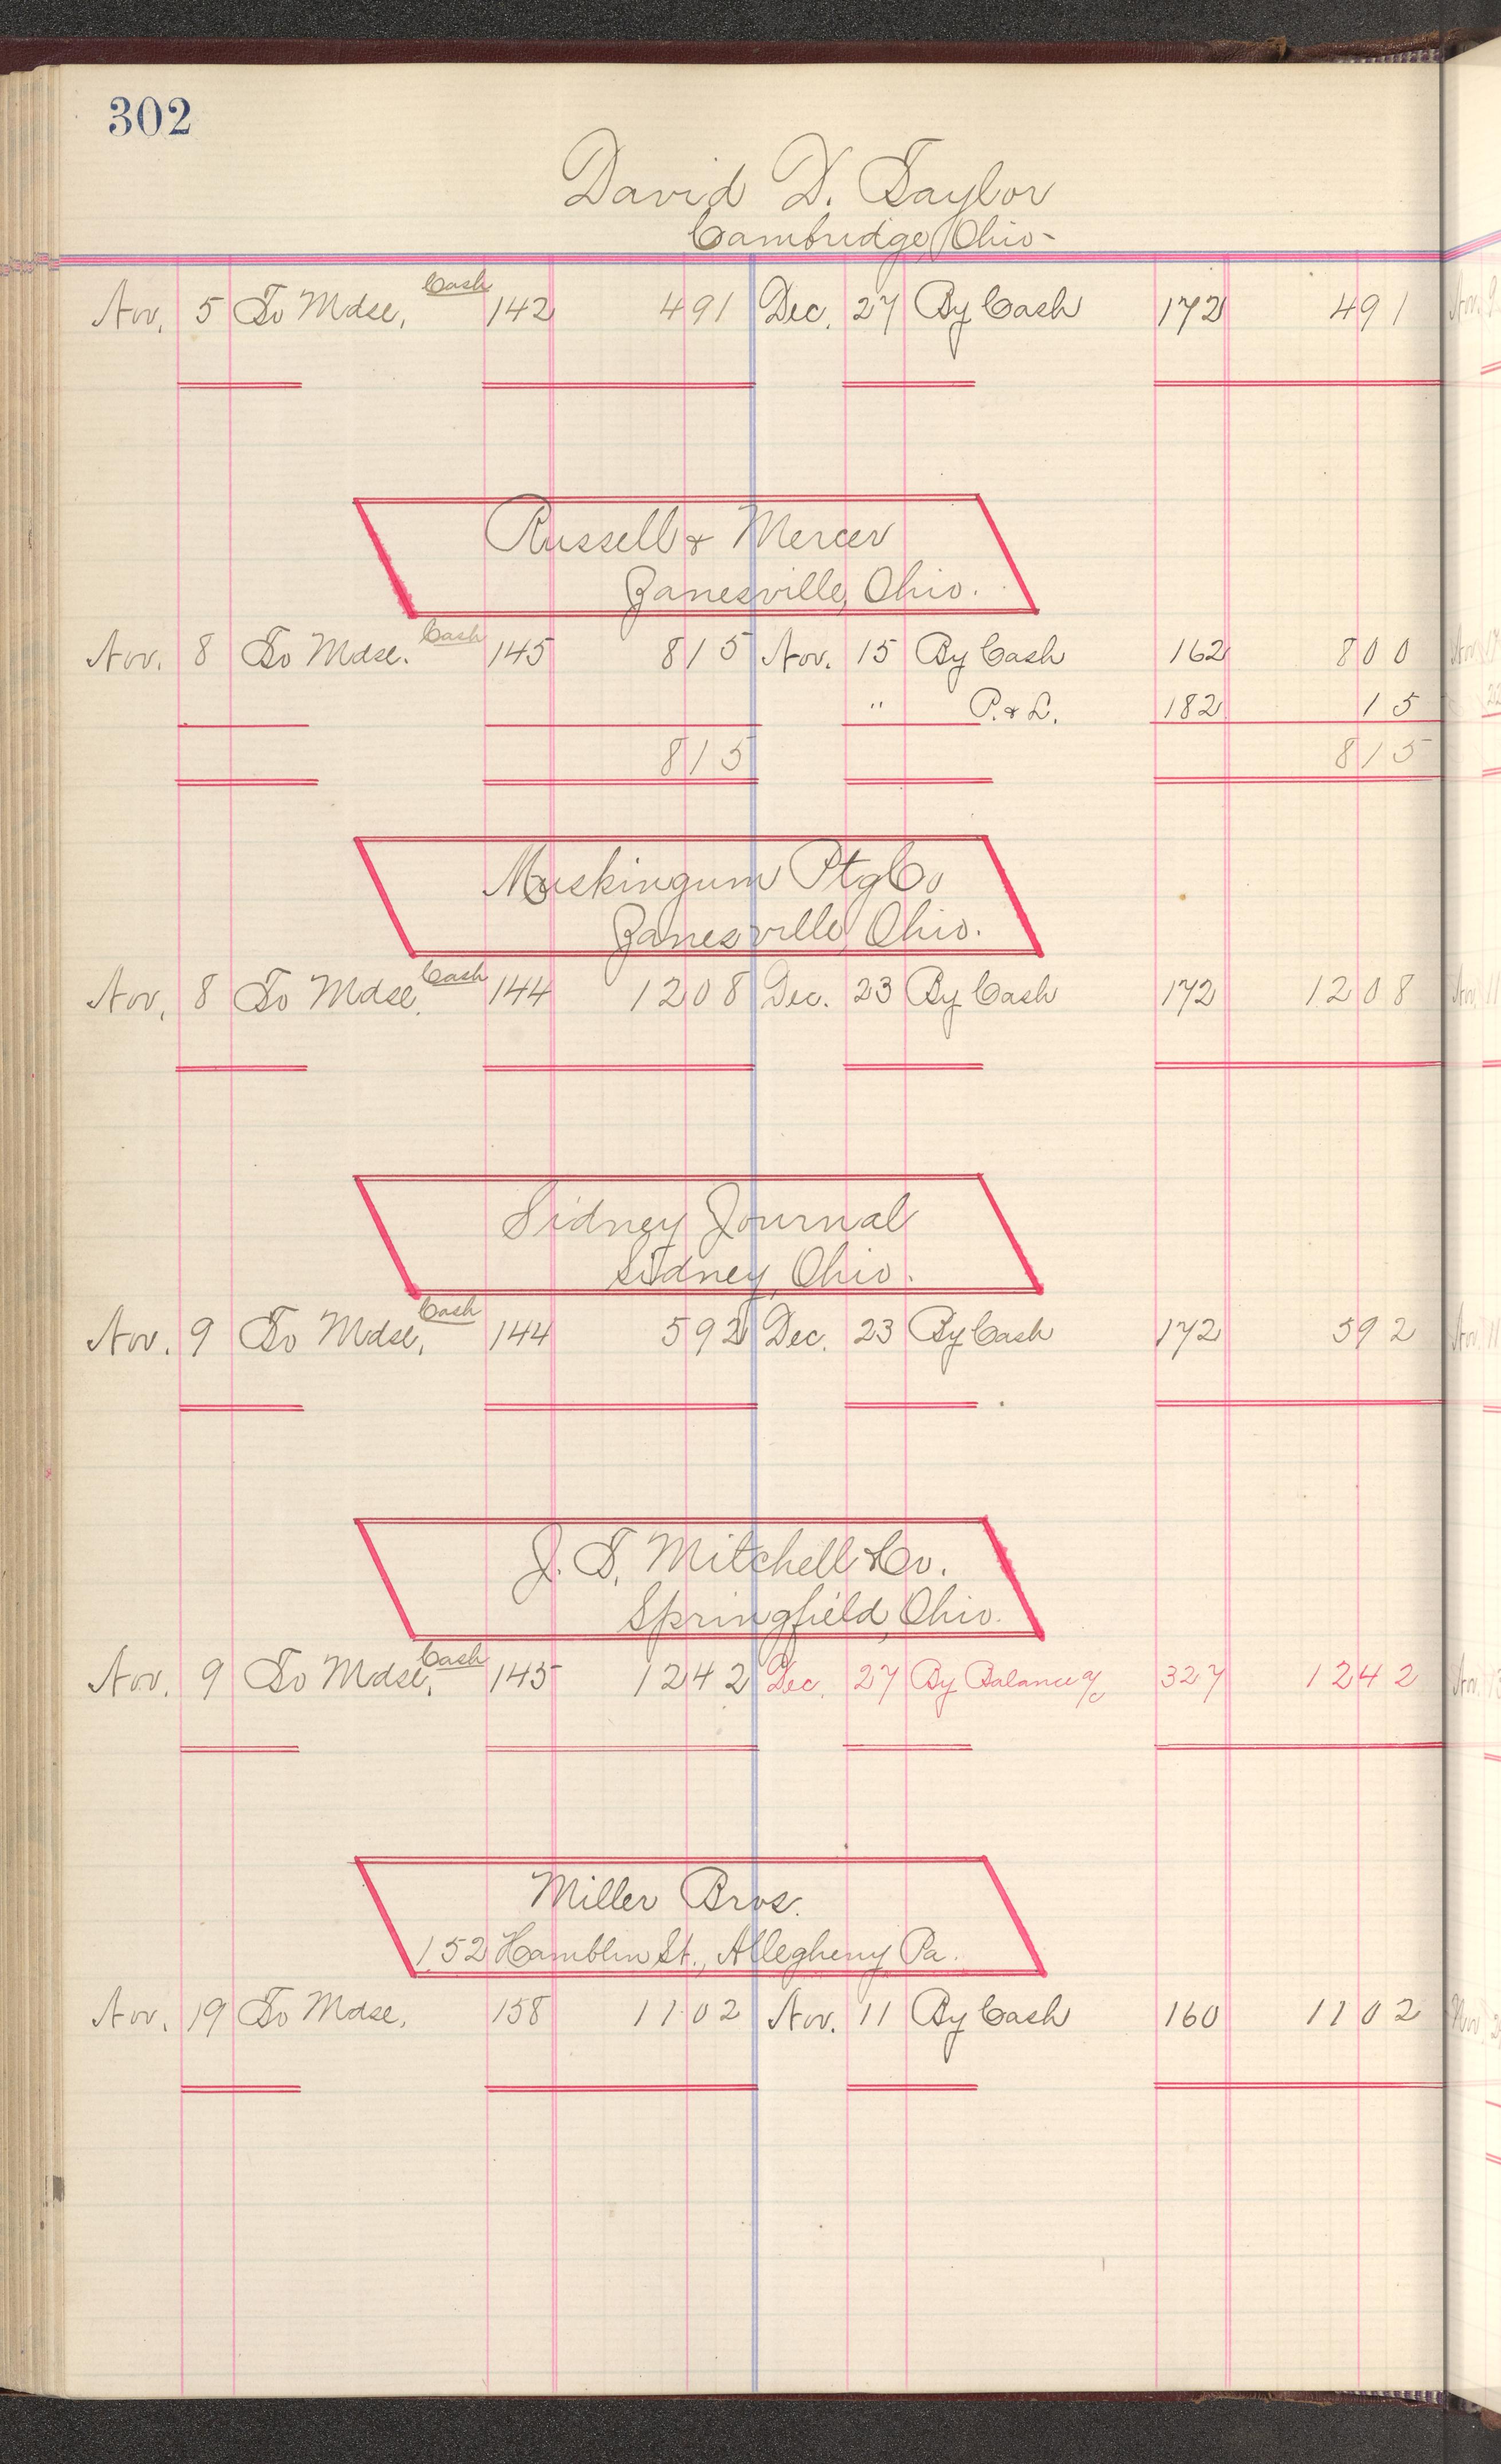 302
David D. Taylor
Cambridge, Ohio-
Nov. 5 To Mdse, Cash 142 491 Dec. 27 By Cash 172 491
Russell & Mercer
Zanesville, Ohio.
Nov. 8 To Mdse. Cash 145 815 Nov. 15 By Cash 162 800
" P. & L. 182 15
815 815
Muskingum Ptg Co
Zanesville, Ohio.
Nov. 8 To Mdse. Cash 144 1208 Dec. 23 By Cash 172 1208
Sidney Journal
Sidney, Ohio.
Nov. 9 To Mdse, Cash 144 592 Dec. 23 By Cash 172 592
J. T. Mitchell & Co.
Springfield, Ohio.
Nov. 9 To Mdse, Cash 145 1242 Dec. 27 By Balance a/c 327 1242
Miller Bros.
152 Hamblin St., Allegheny Pa.
Nov. 19 To Mdse, 158 1102 Nov. 11 By Cash 160 1102